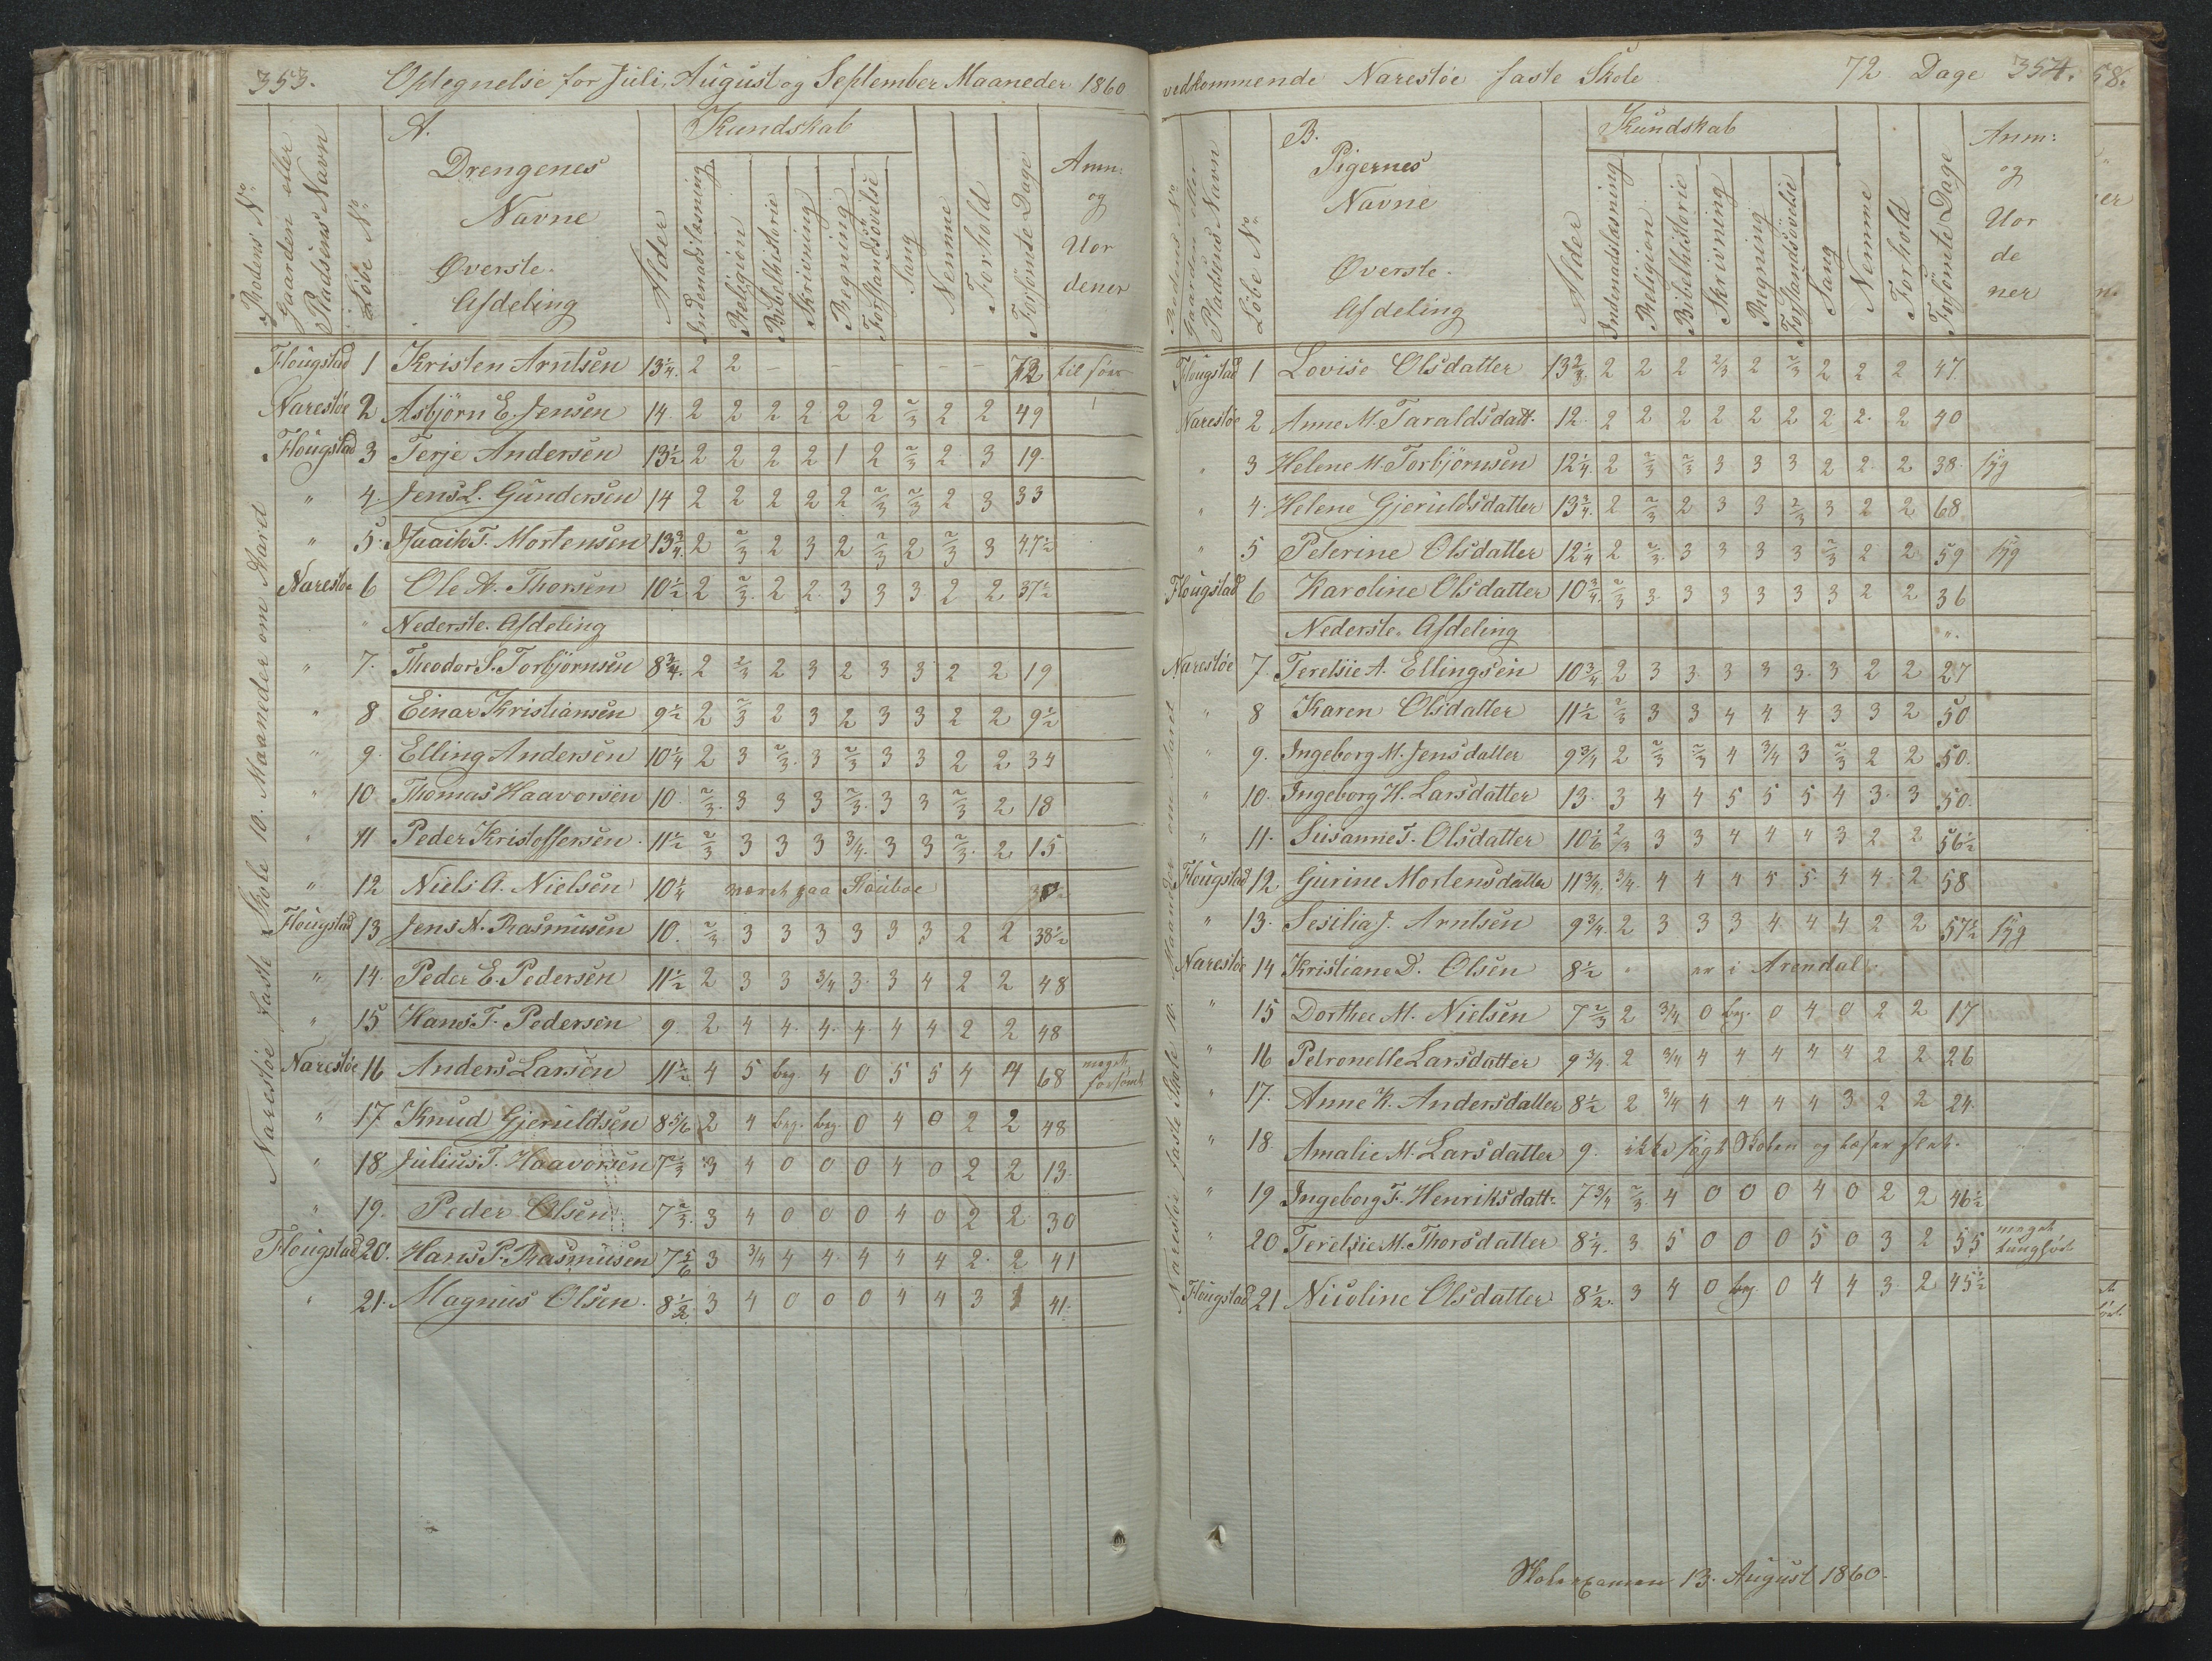 353. Optegnelse for Juli, August og September Maaneder 1860
Skolens No
Gaarden eller Pladsens Navn
Løbe No
A.
Drengenes
Navne
Øverste
Afdeling
Alder
Kundskab
Indenadslæsning
Religion
Bibelhistorie
Skrivning
Regning
Forstandsøvelse
Sang
Nemme
Forhold
Forsømte Dage
Anm:
og
Uor
dener
Narestøe faste Skole 10. Maaneder om Aard
Flougstad 1 Kristen Arntsen 13 1/4. 2 2 – – – – – 72
Narestøe 2 Asbjørn E. Jensen 14. 2 2 2 2 2 2 2/3 2 2 49
Flougstad 3 Terje Andersen 13 1/2 2 2 2 2 1 2 2/3 2 3 19.
" 4. Jens L. Gundersen 14 2 2 2 2 2 2/3 2/3 2 3 33
" 5. Isaaik T. Mortensen 13 3/4 2 2/3 2 3 2 2/3 2 2/3 3 47 1/2
Narestøe 6 Ole A. Thorsen 10 1/2 2 2/3 2 2 3 3 3 2 2 37 1/2
" Nederste Afdeling
" 7. Theodor S. Torbjørnsen 8 3/4. 2 2/3 2 3 2 3 3 2 2 19
" 8 Einar Kristiansen 9 1/2 2 2/3 2 3 2 3 3 2 2 9 1/2
" 9. Elling Andersen 10 1/4 2 3 2/3 3 2/3 3 3 2 2 34
" 10 Thomas Haavorsen 10 2/3 3 3 3 2/3 3 3 2/3 2 18
" 11 Peder Kristoffersen 11 1/2 2/3 3 3 3 3/4 3 3 2/3 2 15
" 12 Niels A. Nielsen 10 1/4 været paa
Flougstad 13 Jens N. Rasmusen 10. 2/3 3 3 3 3 3 3 2 2 38 1/2
" 14. Peder E. Pedersen 11 1/2 2 3 3 3/4 3 3 4 2 2 48
" 15 Hans T. Pedersen 9. 2 4 4. 4. 4. 4 4 2 2 48
Narestøe 16 Anders Larsen 11 1/2 4 5 beg. 4 0 5 5 4 4 68 meget forsømt
" 17 Knud Gjeruldsen 8 5/6 2 4 beg. beg. 0 4 0 2 2 48
" 18 Julius T. Haavorsen 7 2/3 3 4 0 0 0 4 0 2 2 13
" 19. Peder Olsen 7 2/3. 3 4 0 0 0 4 0 2 2 30
Flougstad 20. Hans P. Rasmusen 7 5/6 3 3/4 4 4 4 4 4 2 2 41
" 21. Magnus Olsen 8 1/2 3 4 0 0 0 4 4 3 3 41.
vedkommende Narestøe faste Skole 72 Dage 354.
Skolens No
Gaarden eller Pladsens Navn
Løbe No
B.
Pigernes
Navne
Øverste
Afdeling
Alder
Kundskab
Indenadslæsning
Religion
Bibelhistorie
Skrivning
Regning
Forstandsøvelse
Sang
Nemme
Forhold
Forsømte Dage
Anm:
og
Uor
de
ner
Narestøe faste Skole 10 Maaneder om Aaret
Flougstad 1 Lovise Olsdatter 13 2/3. 2 2 2 2/3 2 2/3 2 2 2 47
Narestøe 2 Anne M. Taraldsdatt. 12. 2 2 2 2 2 2 2 2 2 40
" 3 Helene M. Torbjørnsen 12 1/4 2 2/3 2/3 3 3 3 2 2 2 38 syg
" 4. Helene Gjeruldsdatter 13 3/4 2 2/3 2 3 3 2/3 3 2 2 68
" 5 Peterine Olsdatter 12 1/4 2 2/3 3 3 3 3 2/3 2 2 59 syg
Flougstad 6 Karoline Olsdatter 10 3/4 2/3 3 3 3 3 3 3 2 2 36
Nederste Afdeling
Narestøe 7. Teretsie A. Ellingsen 10 3/4 2 3 3 3 3 3 3 2 2 27
" 8 Karen Olsdatter 11 1/2 2/3 3 3 4 4 4 3 3 2 50
" 9. Ingeborg M. Jensdatter 9 3/4 2 2/3 2/3 4 3/4 3 2/3 2 2 50.
" 10. Ingeborg H. Larsdatter 13. 3 4 4 5 5 5 4 3 3 50
" 11. Susanne T. Olsdatter 10 1/6 2/3 3 3 4 4 4 3 2 2 56 1/2
Flougstad 12 Gurine Mortensdatter 11 3/4. 3/4 4 4 4 5 5 4 4 2 58
" 13. Sesilia J. Arntsen 9 3/4 2 3 3 3 4 4 4 2 2 57 1/2 syg
Narestøe 14 Kristiane D. Olsen 8 1/2 " er i Arendal
" 15 Dorthee M. Nielsen 7 2/3 2 3/4 0 beg. 0 4 0 2 2 17
" 16 Petronelle Larsdatter 9 3/4. 2 3/4 4 4 4 4 4 2 2 26
" 17. Anne K. Andersdatter 8 1/2 2 3/4 4 4 4 4 3 2 2 24
" 18 Amalie M. Larsdatter 9. ikke søgt Skolen og læser slet.
" 19 Ingeborg F. Henriksdatt: 7 3/4 2/3 4 0 0 0 4 0 2 2 46 1/2
" 20 Teretsie M. Thorsdatter 8 1/4. 3 5 0 0 0 5 0 3 2 55 meget tungfør
Flougstad 21 Nicoline Olsdatter 8 1/2. 3 4 0 beg 0 4 4 3 2 45 1/2
Skoleexamen 13. August 1860.
58.